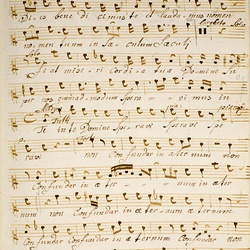 Di es bene di cimus te et lauda mus nomen
nomen tuum in sae culum saeculi Solo
fi at miseri cordi a tua Domine su
per nos quemadmodum spera vi mus in
Tutti
Te in te Domine spe ravi speravi spe
ravi non Confundar in aeternum non
Confundar in aeter num in aeter
num non Confundar in aeter num aeternum
Confundar non Confundar in aeternum Confundar non